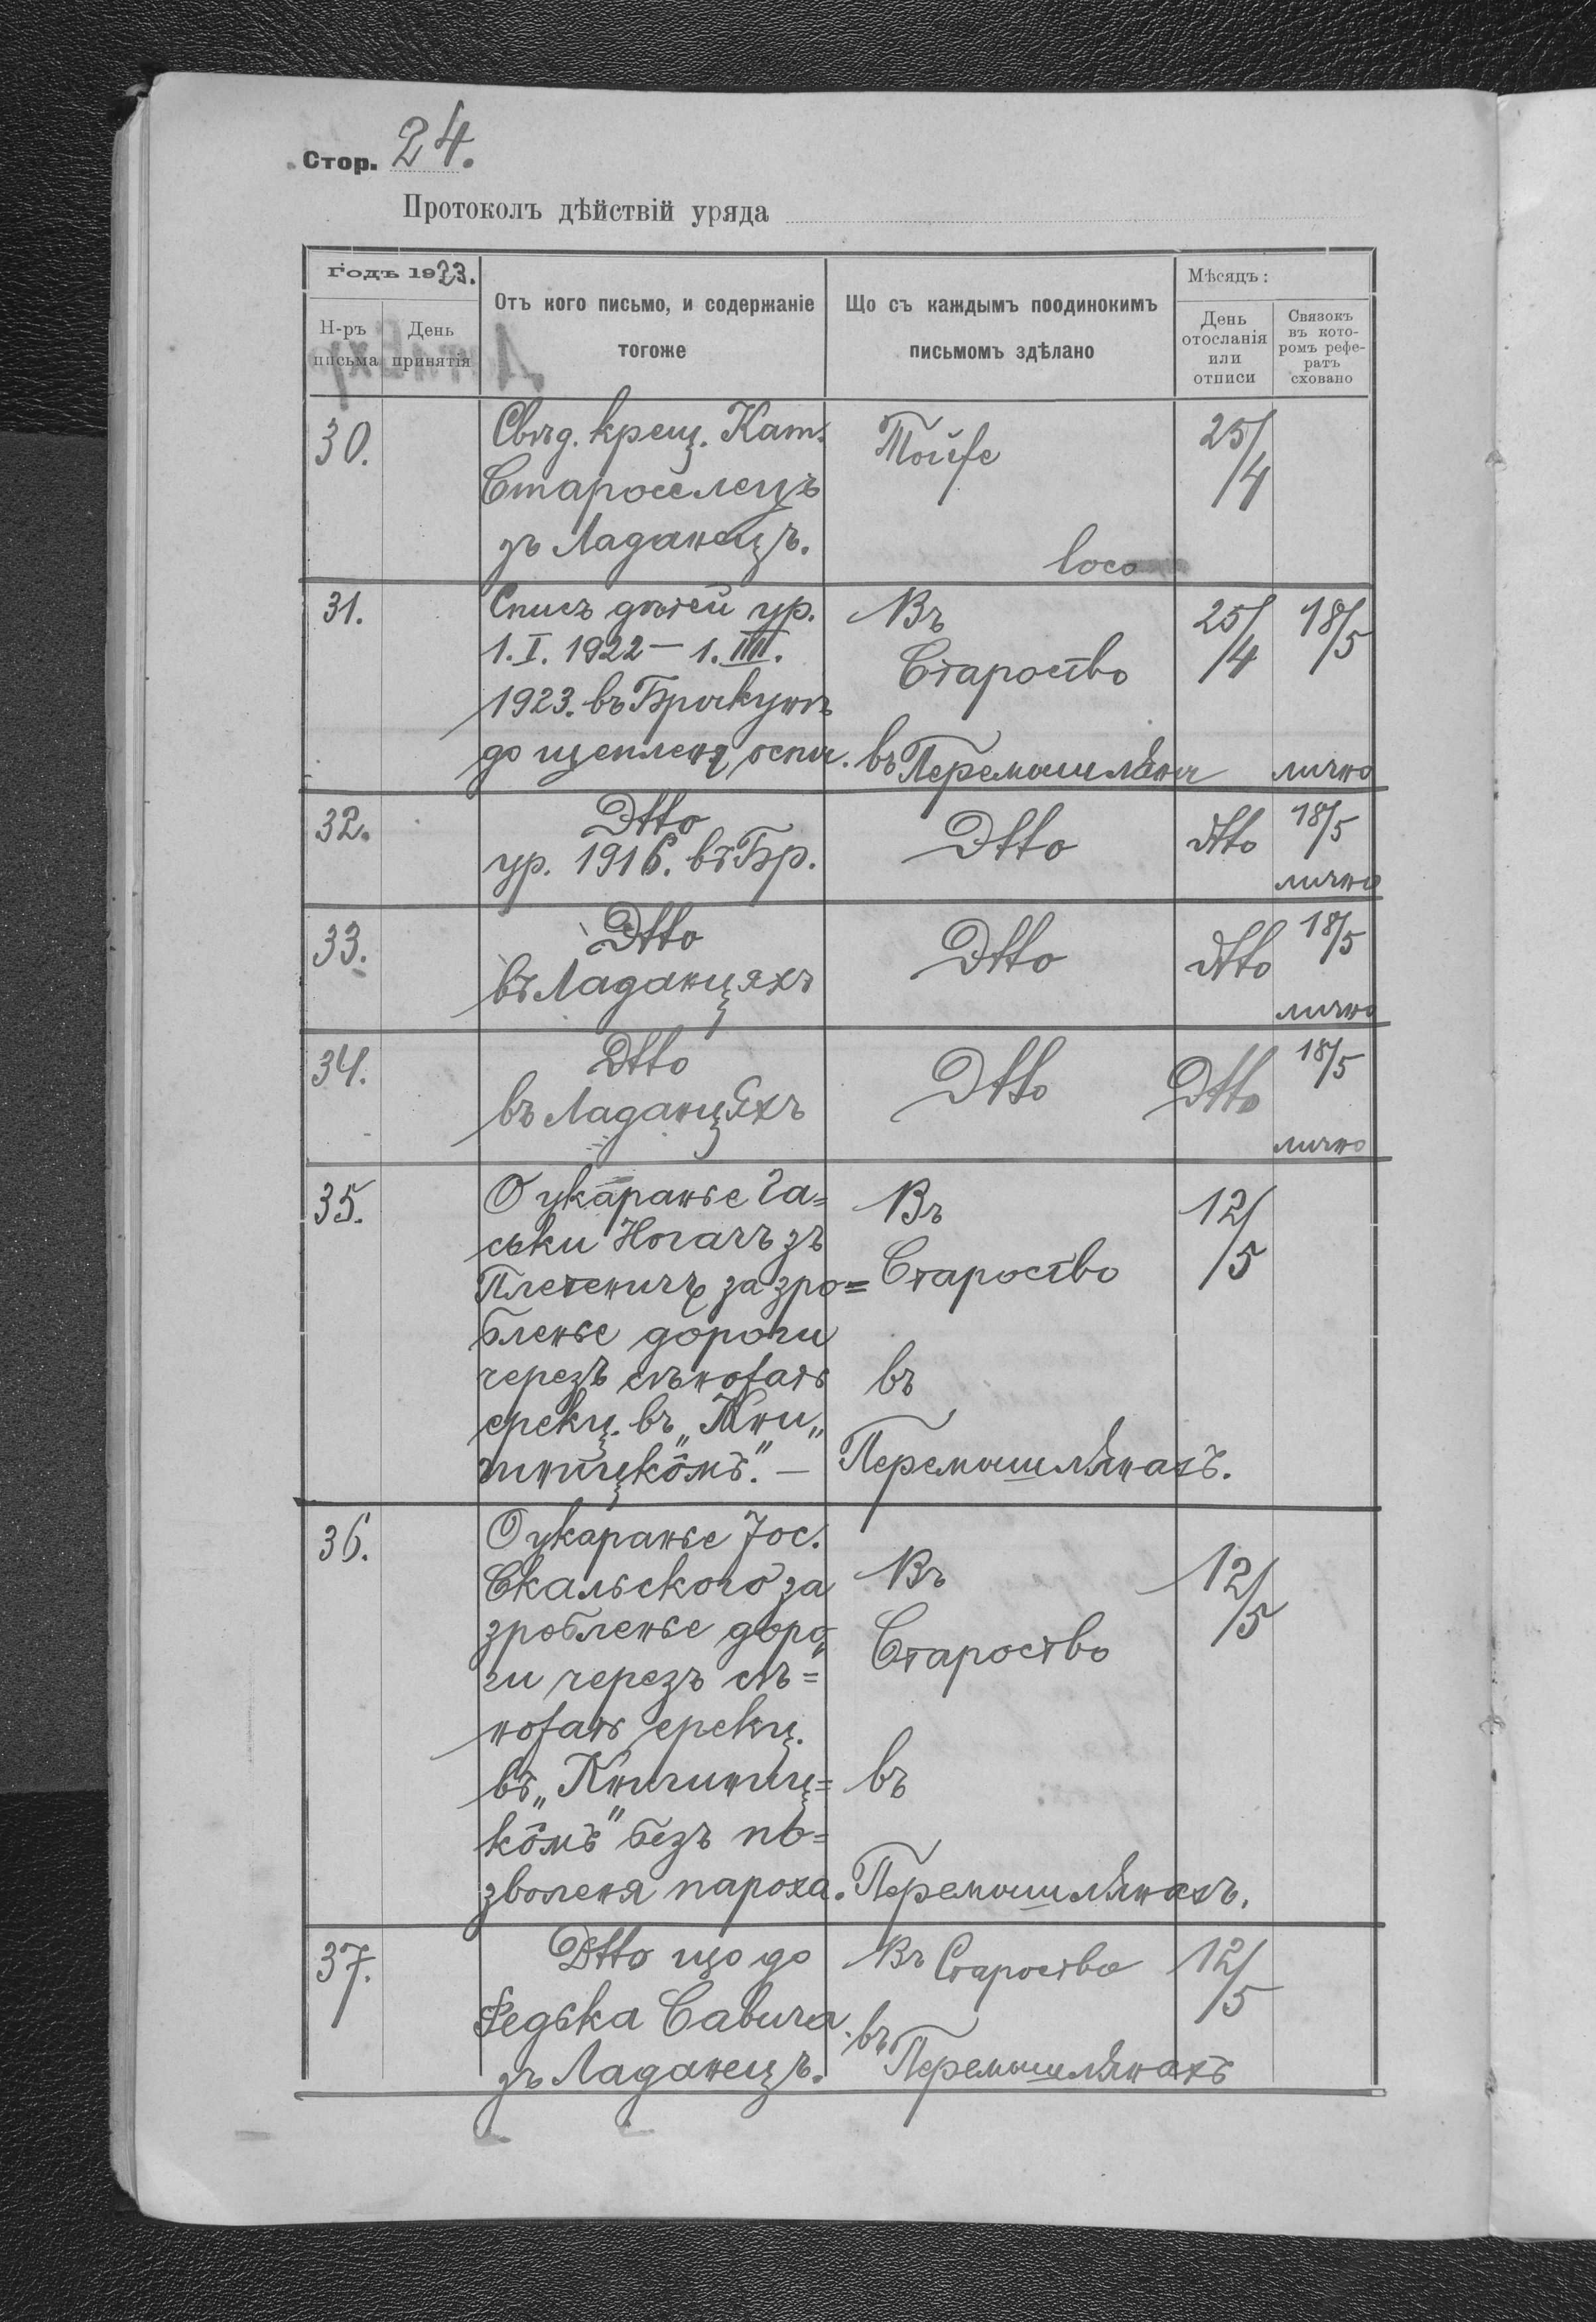 Стор. 24.
Протоколъ дѣйствій уряда
Годъ 1923.
Н-ръ письма
День принятія
Отъ кого письмо, и содержаніе тогоже
Що съ каждымъ поодинокимъ письмомъ здѣлано
Мѣсяцъ:
День отосланія или отписи
Связокъ въ кото-ромъ рефе-ратъ сховано
30.
Свѣд. крещ. Кат.
Староселецъ
зъ Ладанецъ.
Тойже
loco
25/4
31.
Списъ дѣтей ур.
1.I. 1922 — 1.III.
1923. въ Брыкунѣ
до щепленя оспы.
Въ
Староство
въ Перемышляны
25/4
18/5
лично
32.
Dtto
ур. 1916. въ Бр.
Dtto
dtto
18/5
лично
33.
Dtto
въ Ладанцяхъ
Dtto
dtto
18/5
лично
34.
Dtto
въ Ладанцяхъ
Dtto
Dtto
18/5
лично
35.
О укаранье Га=
ськи Ногачъ зъ
Плетеничъ за зро=
бленье дороги
черезъ сѣножать
ерекц. въ „Кни„
гиницкôмъ". —
Въ
Староство
въ
Перемышлянахъ.
12/5
36.
О укаранье Іос.
Скальского за
зробленье доро„
ги черезъ сѣ=
ножать ерекц.
въ „Книгиниц=
кôмъ" безъ по=
зволеня пароха.
Въ
Староство
въ
Перемышлянахъ.
12/5
37.
Dtto що до
Федька Савича
зъ Ладанецъ.
Въ Староство
въ Перемышлянахъ
12/5